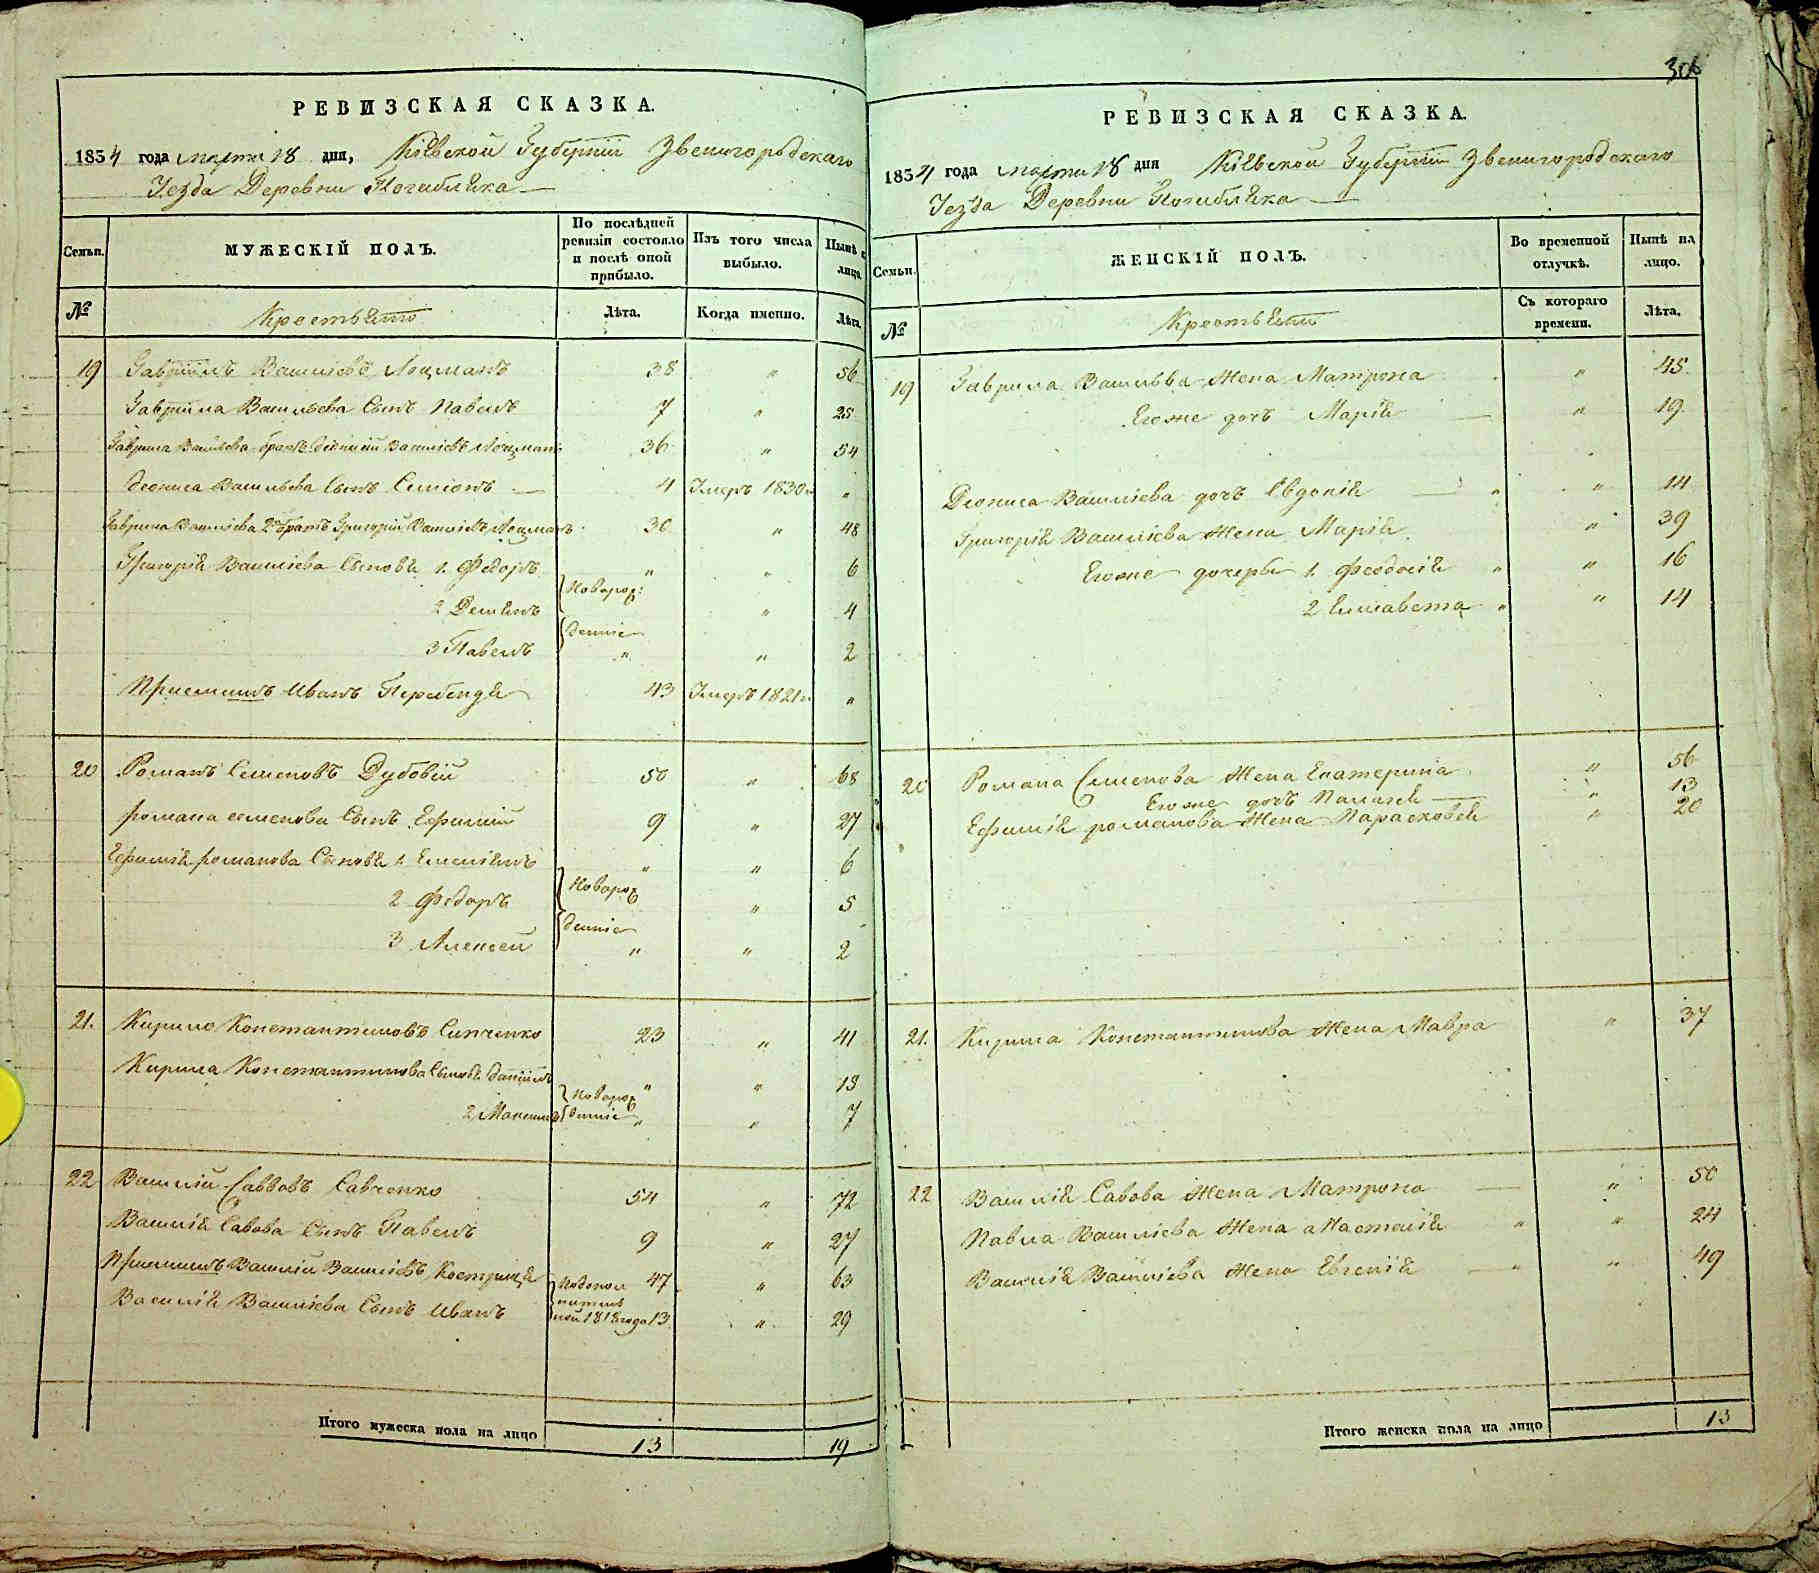 РЕВИЗСКАЯ СКАЗКА.
1834 года марта 18 дня, Кіевской Губерніи Звенигородскаго
Уезда Деревни Погибляка
Семьи.
МУЖЕСКІЙ ПОЛЪ.
По послѣдней ревизіи состояло и послѣ оной прибыло.
Изъ того числа выбыло.
Нынѣ на лицо.
№
Крестьяне
Лѣта.
Когда именно.
Лѣта.
19 Гаврилъ Васильевъ Лоцманъ 38 " 56
Гаврила Васильева Сынъ Павелъ 7 " 25
Гаврила Васильева братъ Діонисій Васильевъ Лоцманъ 36 " 54
Деониса Васильева Сынъ Симіонъ 4 Умеръ 1830 "
Гаврила Василіева 2й братъ Григорій Василіевъ Лоцманъ 30 " 48
Григорія Василіева Сыновья 1. Федоръ " " 6
Новорож
2 Демянъ " 4
денніе
3 Павелъ " " 2
Приемышъ Иванъ Перебендя 43 Умеръ 1821 "
20 Романъ Семеновъ Дубовій 50 " 68
Романа Семенова Сынъ Ефимій 9 " 27
Ефимія Романова Сыновя 1. Емелянъ " " 6
Новорож
2 Федоръ " 5
денніе
3 Алексей " " 2
21. Кирило Константиновъ Сипченко 23 " 41
Кирила Константинова Сыновя Даніилъ " " 13
Новорож
2 Максимъ денніе " " 7
22 Василій Саввовъ Савченко 54 " 72
Василія Савова Сынъ Павелъ 9 " 27
Приемышъ Василій Василіевъ Кострица 47 " 63
Василія Василіева Сынъ Иванъ 1818 года 13 " 29
Итого мужеска пола на лицо 13 19
306
РЕВИЗСКАЯ СКАЗКА.
1834 года марта 18 дня Кіевской Губерніи Звенигородскаго
Уезда Деревни Погибляка
Семьи.
ЖЕНСКІЙ ПОЛЪ.
Во временной отлучкѣ.
Нынѣ на лицо.
№
Крестьяне
Съ котораго времени.
Лѣта.
19 Гаврила Васильва Жена Матрона " 45
Егоже дочъ Марія " 19
Деониса Василіева дочъ Евдокія " 14
Григорія Василіева Жена Марія " 39
Егоже дочерѣ 1. Феодосія " 16
2 Елисавета " 14
20 Романа Семенова Жена Екатерина " 56
Егоже дочъ Палагея " 13
Ефимія Романова Жена Парасковея " 20
21. Кирила Константинова Жена Мавра " 37
22 Василія Савова Жена Матрона " 50
Павла Василіева Жена Настасія " 24
Василія Василіева Жена Евгенія " 49
Итого женска пола на лицо 13